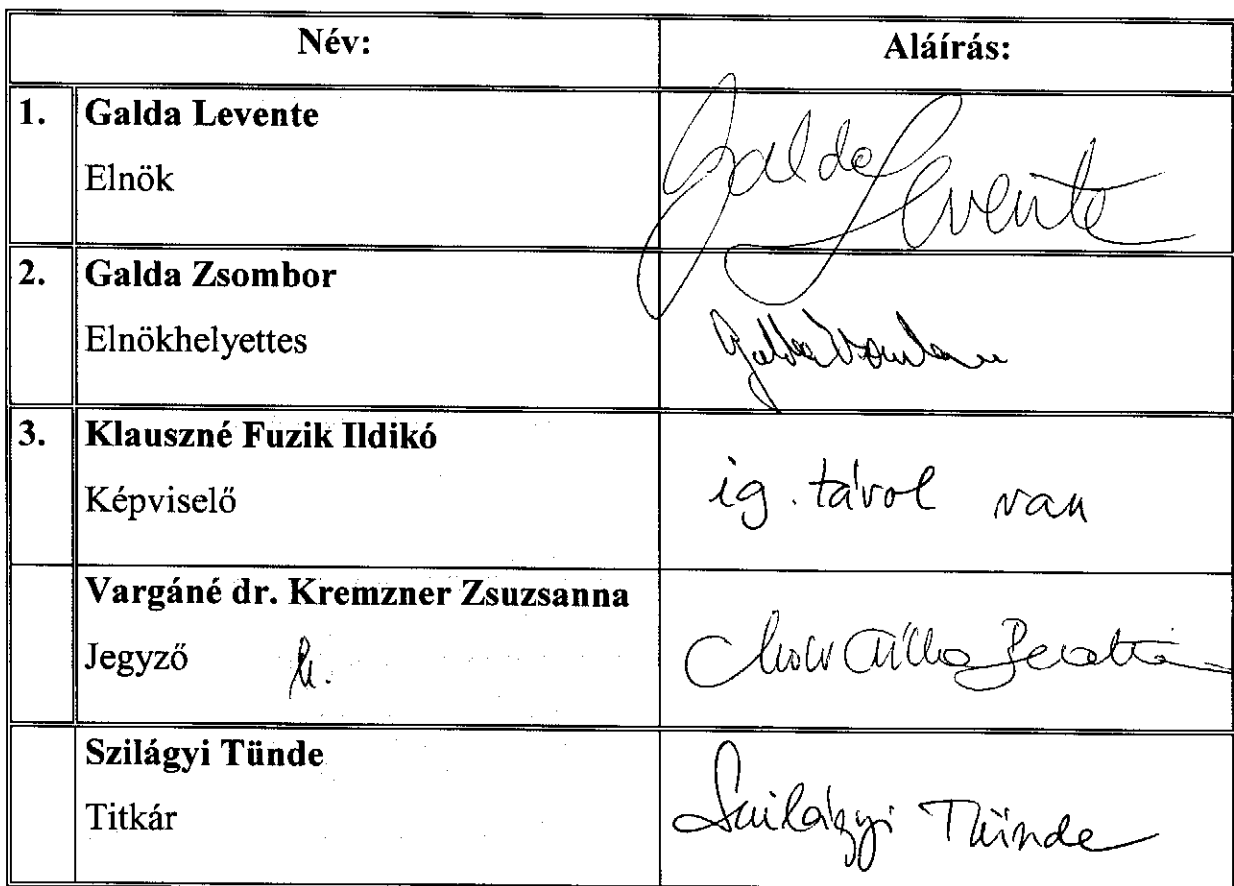 Név: Aláírás:
1. Galda Levente
Elnök
Galda Levente
2. Galda Zsombor
Elnökhelyettes
Galda Zsombor
3. Klauszné Fuzik Ildikó
Képviselő
ig. távol van
Vargáné dr. Kremzner Zsuzsanna
Jegyző h.
Szilágyi Tünde
Titkár
Szilágyi Tünde